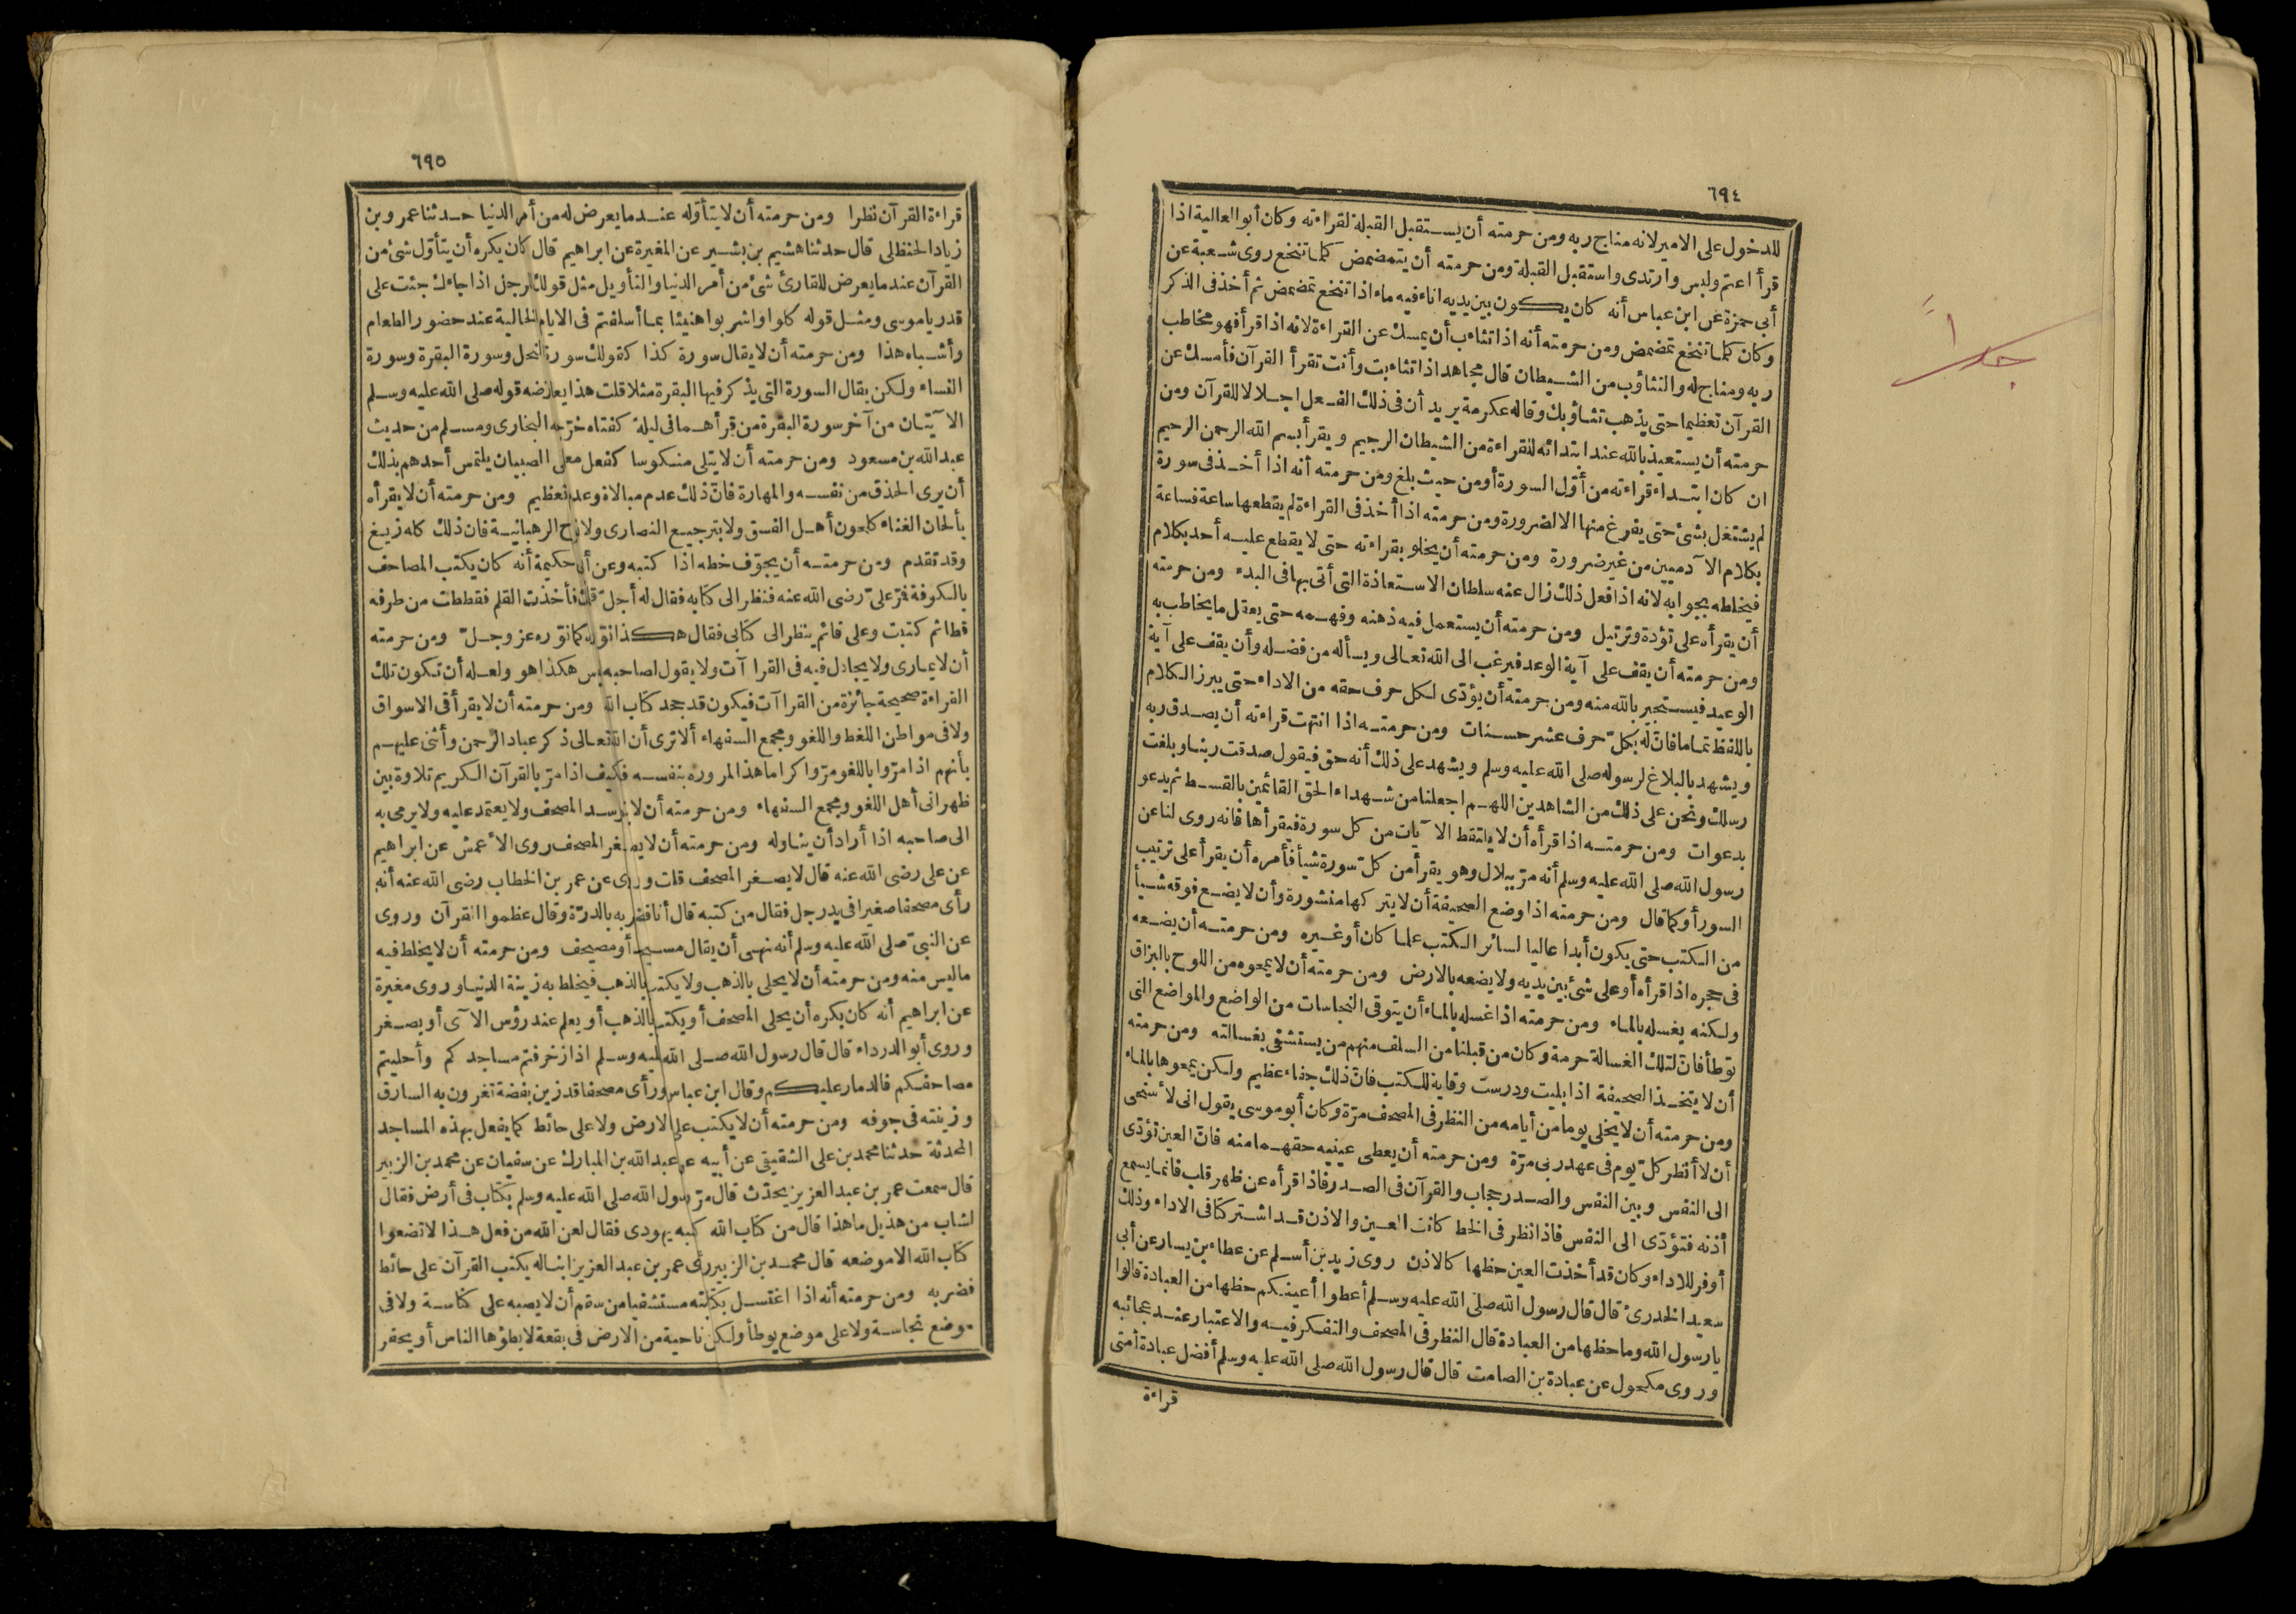 ٦٩٤
للدخول على الامير لانه مناج ربه ومن حرمته أن يستقبل القبلة لقراءته وكان أبو العالية اذا
قرأ اعتم ولبس وارتدى واستقبل القبلة ومن حرمته أن يتمضمض كلما تنخع روى شعبة عن
أبى حمزة عن ابن عباس أنه كان يكون بين يديه اناء فيه ماء اذا تنخع تمضمض ثم أخذ فى الذكر
وكان كلما تنخع تمضمض ومن حرمته أنه اذا تثاءب أن يمسك عن القراءة لانه اذا قرأ فهو مخاطب
ربه ومناج له والتثاؤب من الشيطان قال مجاهد اذا تثاءبت وأنت تقرأ القرآن فأمسك عن
القرآن تعظيما حتى يذهب تثاؤبك وقاله عكرمة يريد أن فى ذلك الفعل اجلالا للقرآن ومن
حرمته أن يستعيذ بالله عند ابتدائه للقراءة من الشيطان الرجيم ويقرأ بسم الله الرحمن الرحيم
ان كان ابتداء قراءته من أوّل السورة أو من حيث بلغ ومن حرمته أنه اذا أخذ فى سورة
لم يشتغل بشئ حتى يفرغ منها الا لضرورة ومن حرمته اذا أخذ فى القراءة لم يقطعها ساعة فساعة
بكلام الآدميين من غير ضرورة ومن حرمته أن يخلو بقراءته حتى لا يقطع عليه أحد بكلام
فيخلطه بجوابه لانه اذا فعل ذلك زال عنه سلطان الاستعاذة التى أتى بها فى البدء ومن حرمته
أن يقرأه على تؤدة وترتيل ومن حرمته أن يستعمل فيه ذهنه وفهمه حتى يعقل ما يخاطب به
ومن حرمته أن يقف على آية الوعد فيرغب الى الله تعالى ويسأله من فضله وأن يقف على آية
الوعيد فيستجير بالله منه ومن حرمته أن يؤدّى لكل حرف حقه من الاداء حتى يبرز الكلام
باللفظ تماما فانّ له بكلّ حرف عشر حسنات ومن حرمته اذا انتهت قراءته أن يصدق ربه
ويشهد بالبلاغ لرسوله صلى الله عليه وسلم ويشهد على ذلك أنه حق فيقول صدقت ربنا وبلغت
رسلك ونحن على ذلك من الشاهدين اللهم اجعلنا من شهداء الحق القائمين بالقسط ثم يدعو
بدعوات ومن حرمته اذا قرأه أن لا يلتقط الآيات من كل سورة فيقرأها فانه روى لنا عن
رسول الله صلى الله عليه وسلم أنه مرّ ببلال وهو يقرأ من كلّ سورة شيأ فأمره أن يقرأ على ترتيب
السور أو كما قال ومن حرمته اذا وضع الصحيفة أن لا يتركها منشورة وأن لا يضع فوقه شيأ
من الكتب حتى يكون أبدا عاليا لسائر الكتب علما كان أو غيره ومن حرمته أن يضعه
فى حجره اذا قرأه أو على شئ بين يديه ولا يضعه بالارض ومن حرمته أن لا يمحوه من اللوح بالبزاق
ولكنه يغسله بالماء ومن حرمته اذا غسله بالماء أن يتوقى النجاسات من الواضع والمواضع التى
توطأ فانّ لتلك الغسالة حرمة وكان من قبلنا من السلف منهم من يستشفى بغسالته ومن حرمته
أن لا يتخذ الصحيفة اذا بليت ودرست وقاية للكتب فانّ ذلك جفاء عظيم ولكن يمحوها بالماء
ومن حرمته أن لا يخلى يوما من أيامه من النظر فى المصحف مرّة وكان أبو موسى يقول انى لأستحى
أن لا أنظر كلّ يوم فى عهد ربى مرّة ومن حرمته أن يعطى عينيه حقهما منه فانّ العين تؤدّى
الى النفس وبين النفس والصدر حجاب والقرآن فى الصدر فاذا قرأه عن ظهر قلب فانما يسمع
أذنه فتؤدّى الى النفس فاذا نظر فى الخط كانت العين والاذن قد اشتركتا فى الاداء وذلك
أوفر للاداء وكان قد أخذت العين حظها كالاذن روى زيد بن أسلم عن عطاء بن يسار عن أبى
سعيد الخدرىّ قال قال رسول الله صلى الله عليه وسلم أعطوا أعينكم حظها من العبادة قالوا
يا رسول الله وما حظها من العبادة قال النظر فى المصحف والتفكر فيه والاعتبار عند عجائبه
وروى مكحول عن عبادة بن الصامت قال قال رسول الله صلى الله عليه وسلم أفضل عبادة أمتى
قراءة
٦٩٥
قراءة القرآن نظرا ومن حرمته أن لا يتأوّله عند ما يعرض له من أمر الدنيا حدثنا عمرو بن
زياد الحنظلى قال حدثنا هشيم بن بشير عن المغيرة عن ابراهيم قال كان يكره أن يتأوّل شئ من
القرآن عند ما يعرض للقارئ شئ من أمر الدنيا والتأويل مثل قولك لرجل اذا جاءك جئت على
قدر يا موسى ومثل قوله كلوا واشربوا هنيئا بما أسلفتم فى الايام الخالية عند حضور الطعام
وأشباه هذا ومن حرمته أن لا يقال سورة كذا كقولك سورة النحل وسورة البقرة وسورة
النساء ولكن يقال السورة التى يذكر فيها البقرة مثلا قلت هذا يعارضه قوله صلى الله عليه وسلم
الآيتان من آخر سورة البقرة من قرأهما فى ليلة كفتاه خرّجه البخارى ومسلم من حديث
عبد الله بن مسعود ومن حرمته أن لا يتلى منكوسا كفعل معلى الصبيان يلتمس أحدهم بذلك
أن يرى الحذق من نفسه والمهارة فانّ ذلك عدم مبالاة وعدم تعظيم ومن حرمته أن لا يقرأه
بألحان الغناء كلحون أهل الفسق ولا بترجيع النصارى ولا نوح الرهبانية فان ذلك كله زيغ
وقد تقدم ومن حرمته أن يجوّف خطه اذا كتبه وعن أبى حكيمة أنه كان يكتب المصاحف
بالكوفة فمرّ علىّ رضى الله عنه فنظر الى كتابه فقال له أجلّ قلمك فأخذت القلم فقططت من طرفه
قطا ثم كتبت وعلى قائم ينظر الى كتابى فقال هكذا نوّره كما نوّره عز وجلّ ومن حرمته
أن لا يمارى ولا يجادل فيه فى القراآت ولا يقول لصاحبه ليس هكذا هو ولعله أن تكون تلك
القراءة صحيحة جائزة من القراآت فيكون قد جحد كتاب الله ومن حرمته أن لا يقرأ فى الاسواق
ولا فى مواطن اللغط واللغو ومجمع السفهاء ألا ترى أن الله تعالى ذكر عباد الرحمن وأثنى عليهم
بأنهم اذا مرّوا باللغو مرّوا كراما هذا المروره بنفسه فكيف اذا مرّ بالقرآن الكريم تلاوة بين
ظهرانى أهل اللغو ومجمع السفهاء ومن حرمته أن لا يتوسد المصحف ولا يعتمد عليه ولا يرمى به
الى صاحبه اذا أراد أن يناوله ومن حرمته أن لا يصغر المصحف روى الأعمش عن ابراهيم
عن على رضى الله عنه قال لا يصغر المصحف قلت وروى عن عمر بن الخطاب رضى الله عنه أنه
رأى مصحفا صغيرا فى يد رجل فقال من كتبه قال أنا فضربه بالدرّة وقال عظموا القرآن وروى
عن النبىّ صلى الله عليه وسلم أنه نهى أن يقال مسيجد أو مصيحف ومن حرمته أن لا يخلط فيه
ما ليس منه ومن حرمته أن لا يحلى بالذهب ولا يكتب بالذهب فيخلط به زينة الدنيا وروى مغيرة
عن ابراهيم أنه كان يكره أن يحلى المصحف أو يكتب بالذهب أو يعلم عند رؤس الآى أو يصغر
وروى أبو الدرداء قال قال رسول الله صلى الله عليه وسلم اذا زخرفتم مساجدكم وأحليتم
مصاحفكم فالدمار عليكم وقال ابن عباس ورأى مصحفا قد زين بفضة تغرون به السارق
وزينته فى جوفه ومن حرمته أن لا يكتب على الارض ولا على حائط كما يفعل بهذه المساجد
المحدثة حدثنا محمد بن على الشقيقى عن أبيه عن عبد الله بن المبارك عن سفيان عن محمد بن الزبير
قال سمعت عمر بن عبد العزيز يحدّث قال مرّ رسول الله صلى الله عليه وسلم بكتاب فى أرض فقال
لشاب من هذيل ما هذا قال من كتاب الله كتبه يهودى فقال لعن الله من فعل هذا لا تضعوا
كتاب الله الا موضعه قال محمد بن الزبير رأى عمر بن عبد العزيز ابنا له يكتب القرآن على حائط
فضربه ومن حرمته أنه اذا اغتسل بكتابته مستشفيا من سقم أن لا يصبه على كناسة ولا فى
موضع نجاسة ولا على موضع يوطأ ولكن ناحية من الارض فى بقعة لا يطؤها الناس أو يحفر